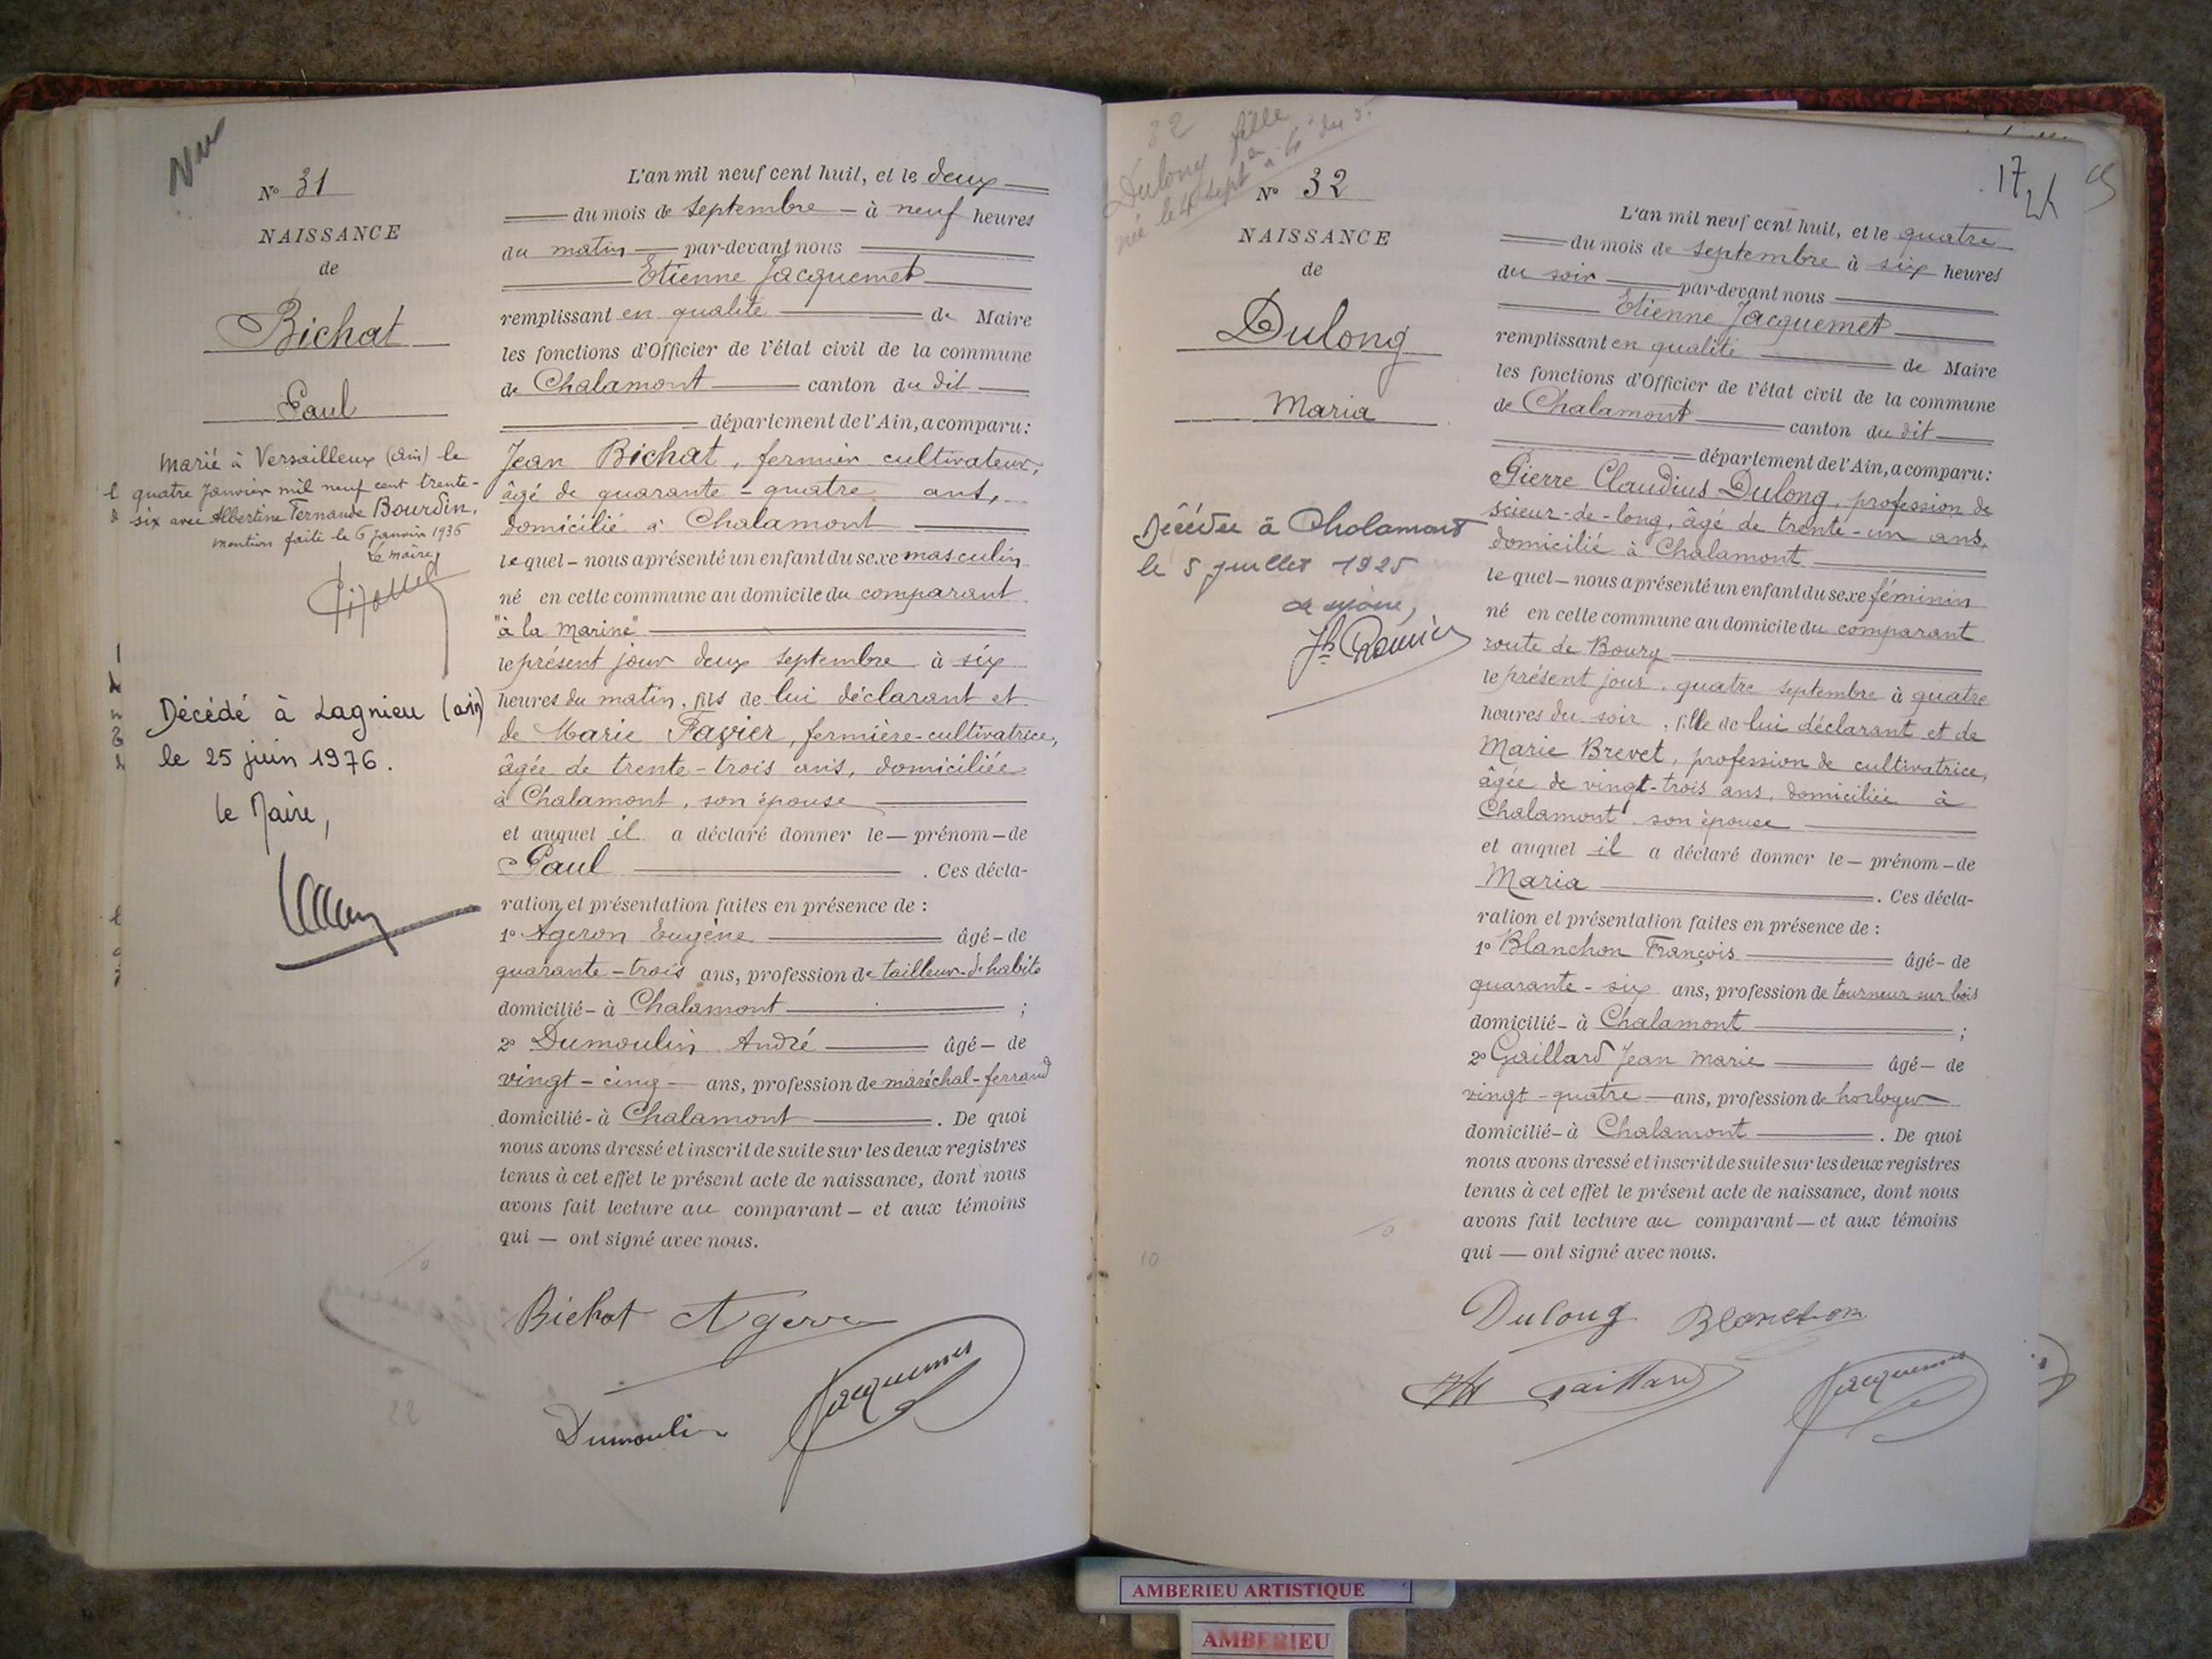 Nº 31
NAISSANCE
de
Bichat
Paul
Marié à Versailleux (Ain) le
quatre Janvier mil neuf cent trente-
six avec Albertine Fernande Bourdin.
mention faite le 6 janvier 1936
Le maire
Décédé à Lagnieu (ain)
le 25 juin 1976.
le Maire,
L'an mil neuf cent huit, et le deux
du mois de Septembre - à neuf heures
du matin par-devant nous
Etienne Jacquemet
remplissant en qualité de Maire
les fonctions d'Officier de l'état civil de la commune
de Chalamont canton du dit
département de l'Ain, a comparu:
Jean Bichat, fermier cultivateur,
âgé de quarante-quatre ans,
domicilié à Chalamont
lequel - nous a présenté un enfant du sexe masculin
né en cette commune au domicile du comparant
"à la Marine"
le présent jour deux Septembre à six
heures du matin, fils de lui déclarant et
de Marie Favier, fermière-cultivatrice,
âgée de trente-trois ans, domiciliée
à Chalamont, son épouse
et auquel il a déclaré donner le - prénom - de
Paul . Ces décla-
ration et présentation faites en présence de :
1º Ageron Eugène âgé - de
quarante-trois ans, profession de tailleur-d'habits
domicilié - à Chalamont ;
2º Dumoulin André âgé - de
vingt-cinq - ans, profession de maréchal-ferrand
domicilié - à Chalamont . De quoi
nous avons dressé et inscrit de suite sur les deux registres
tenus à cet effet le présent acte de naissance, dont nous
avons fait lecture au comparant - et aux témoins
qui - ont signé avec nous.
Bichat Ageron
Dumoulin Jacquemet
32
Dulong fille
née le 4 sept
Nº 32
NAISSANCE
de
Dulong
Maria
Décédée à Chalamont
le 5 juillet 1925
Le maire,
17
L'an mil neuf cent huit, et le quatre
du mois de Septembre à six heures
du soir par-devant nous
Etienne Jacquemet
remplissant en qualité de Maire
les fonctions d'Officier de l'état civil de la commune
de Chalamont canton du dit
département de l'Ain, a comparu:
Pierre Claudius Dulong, profession de
scieur-de-long, âgé de trente-un ans,
domicilié à Chalamont
lequel - nous a présenté un enfant du sexe féminin
né en cette commune au domicile du comparant
route de Bourg
le présent jour, quatre septembre à quatre
heures du soir, fille de lui déclarant et de
Marie Brevet, profession de cultivatrice,
âgée de vingt-trois ans, domiciliée à
Chalamont son épouse
et auquel il a déclaré donner le - prénom - de
Maria . Ces décla-
ration et présentation faites en présence de :
1º Blanchon François âgé - de
quarante-six ans, profession de tourneur sur bois
domicilié - à Chalamont ;
2º Gaillard Jean Marie âgé - de
vingt-quatre - ans, profession de horloger
domicilié - à Chalamont . De quoi
nous avons dressé et inscrit de suite sur les deux registres
tenus à cet effet le présent acte de naissance, dont nous
avons fait lecture au comparant - et aux témoins
qui - ont signé avec nous.
Dulong Blanchon
Gaillard Jacquemet
AMBERIEU ARTISTIQUE
AMBERIEU